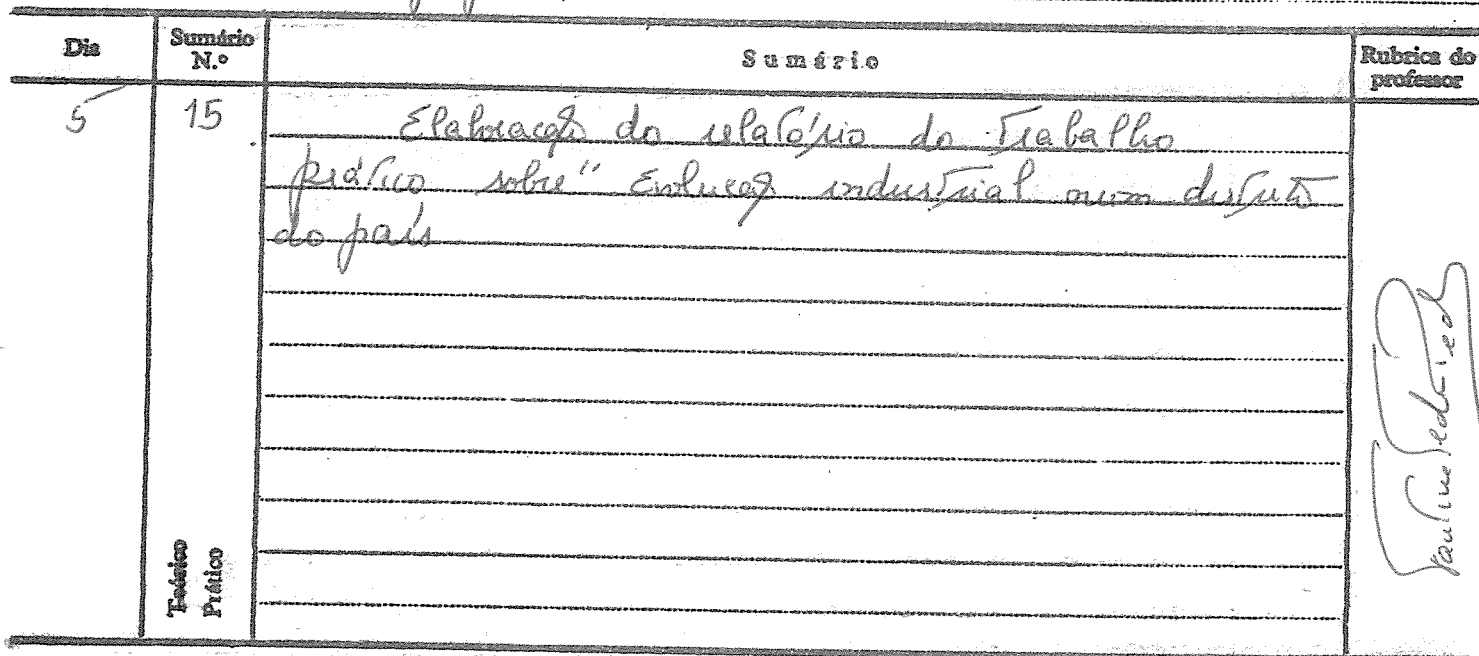 Dia
Sumário N.º
Sumário
Rubrica do professor
5
15
Elaboração do relatório do Trabalho
prático sobre "Evolução industrial num distrito
do país
Teórico
Prático